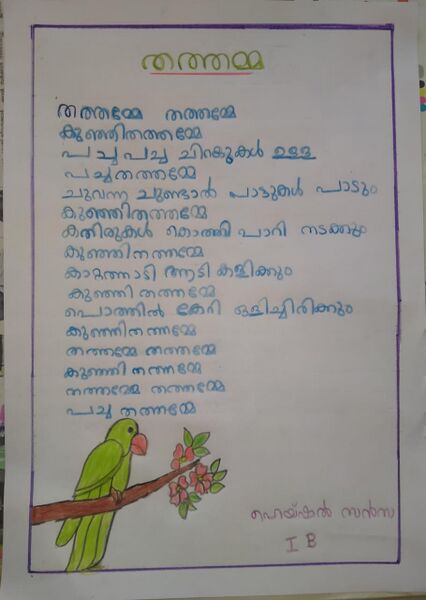 തത്തമ്മ
തത്തമ്മേ തത്തമ്മേ
കുഞ്ഞിതത്തമ്മേ
പച്ച പച്ച ചിറകുകൾ ഉള്ള
പച്ചതത്തമ്മേ
ചുവന്ന ചുണ്ടാൽ പാട്ടുകൾ പാടും
കുഞ്ഞിതത്തമ്മേ
കതിരുകൾ കൊത്തി പാറി നടക്കും
കുഞ്ഞിതത്തമ്മേ
കാറ്റത്താടി ആടി കളിക്കും
കുഞ്ഞി തത്തമ്മേ
പൊത്തിൽ കേറി ഒളിച്ചിരിക്കും
കുഞ്ഞിതത്തമ്മേ
തത്തമ്മേ തത്തമ്മേ
കുഞ്ഞി തത്തമ്മേ
തത്തമ്മേ തത്തമ്മേ
പച്ച തത്തമ്മേ
I B